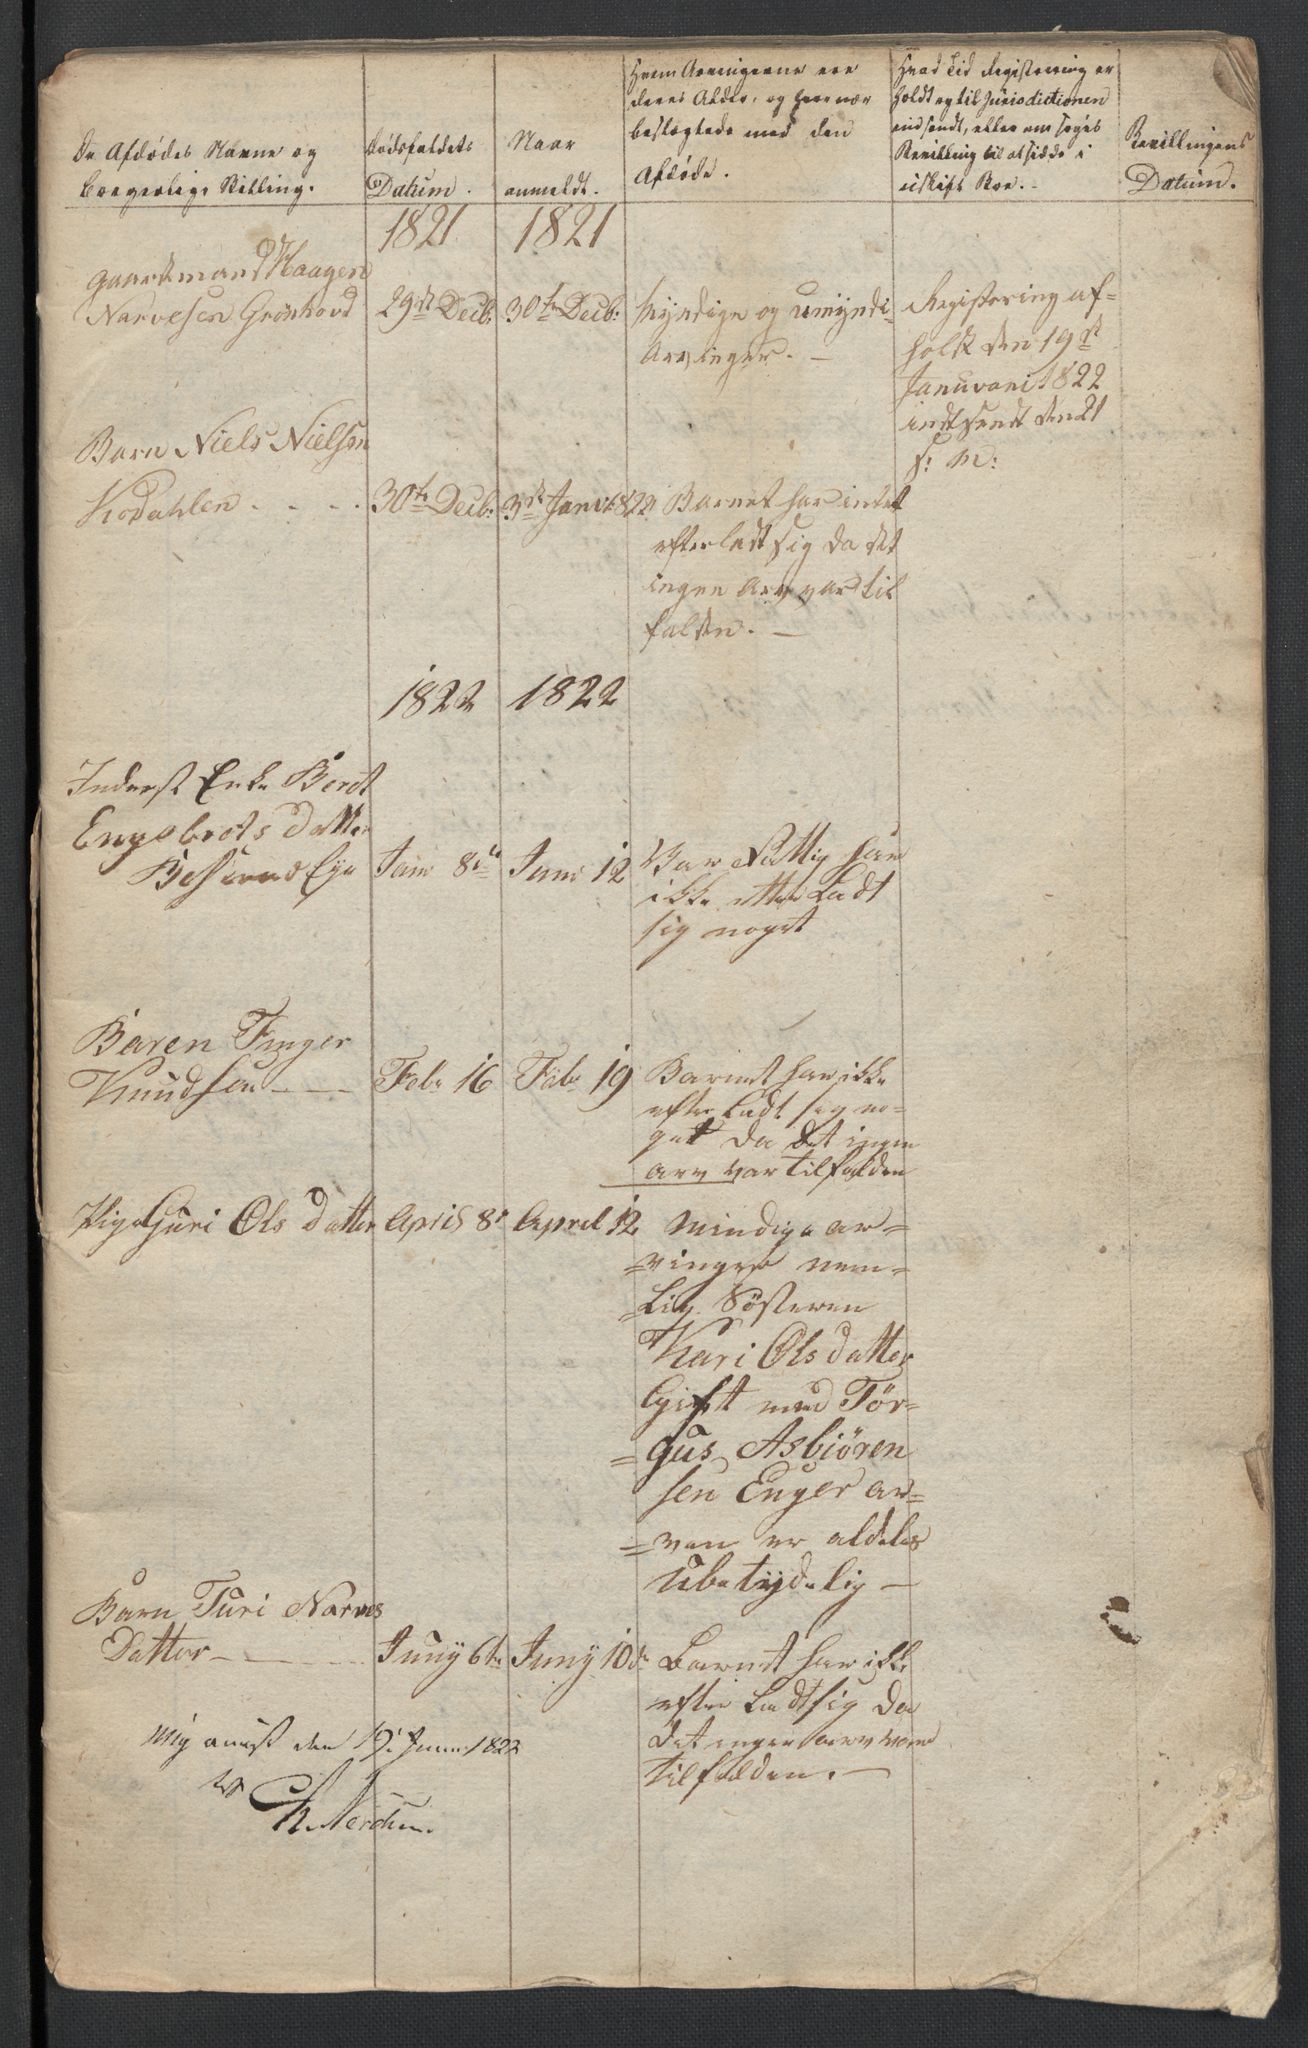 De Afdödes Navne og
borgerlige Stilling.
Dödsfaldets
Datum.
Naar
anmeldt.
Hvem Arvingerne ere
deres Alder, og hvor nær
beslægtede med den
Afdöde.
Hvad Tid Registrering er
holdt og til Jurisdictionen
indsendt, eller om söges
Bevilling til at sidde i
uskift Boe.
Bevillingens
Datum.
1821
1821
Gaardmand Haagen
Narvesen Grönhovd
29de Decb:
30te Decb:
Myndige og Umyndi-
Arvinger. —
Registering af-
holdt den 19de
Januvari 1822
indtsendt den 21
s: M:
Barn Niels Nielsen
Kodahlen . . . .
30te Decb:
3de Janv 1822
Barnet har intet
efterladt sig da det
ingen Arv var til
falden. —
1822
1822
Inderst Enke Beret
Engebrets datter
Eye
Jani 8de
Jani 12
Var Fattig har
ikke etter Ladt
sig noget
Baren Finger
Knudsen — —
Feb: 16
Feb: 19
Barnet har ikke
efter Ladt sig no-
get da det ingen
arv var tilfalden
Pige Guri Ols datter
April 8de
April 12
Mindige ar-
=vinger nem=
=Lig Sösteren
Kari Ols datter
Gift med Tör=
=gus Asbiören
sen Enger ar=
=ven er aldeles
Ubetydelig —
Barn Turi Narves
Datter — — —
Juny 6te
Juny 10de
Barnet har ikke
efter Ladt sig da
det ingen arv var
tilfalden. —
mig den 19de Juni 1822